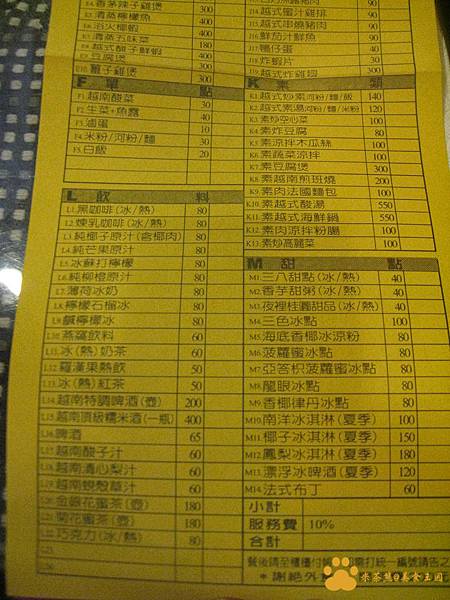 E4.香茅辣子雞煲 300
E5.清蒸檸檬魚 400
E6.浴火椰蝦 400
180
E9.豆腐煲 300
E10.薑子雞煲 300
點
F1.越南酸菜 30
F2.生菜+魚露 40
F3.滷蛋 10
F4.米粉/河粉/麵 30
F5.白飯 20
L 飲 料
L1.黑咖啡(冰/熱) 80
L2.煉乳咖啡(冰/熱) 80
L3.純椰子原汁(含椰肉) 80
L4.純芒果原汁 80
L5.冰蘇打檸檬 80
L6.純柳橙原汁 80
L7.薄荷冰奶 80
L8.檸檬石榴冰 80
L9.鹹檸檬冰 80
L10.燕窩飲料 60
L11.冰(熱)奶茶 60
L12.羅漢果熱飲 50
L13.冰(熱)紅茶 50
L14.越南特調啤酒(壺) 200
L15.越南頂級糯米酒(一瓶) 400
L16.啤酒 65
L17.越南酸子汁 60
L18.越南清心梨汁 60
L19.越南蜆殼草汁 60
L20.金銀花蜜茶(壺) 180
L21.菊花蜜茶(壺) 180
L22.巧克力(冰/熱) 80
I3.越式蜜汁雞排 90
I4.越式串燒豬肉 90
I6.鮮茄汁鮮魚 90
I7.鴨仔蛋 40
I8.炸蝦片 30
I9.越式炸雞翅 300
K 素 類
K1.越式炒素河粉/麵/飯 140
K2.越式素湯河粉/麵/米粉 120
K3.素炒空心菜 100
K4.素炸豆腐 80
K5.素涼拌木瓜絲 100
K6.素蔬菜涼拌 100
K7.素豆腐煲 300
K8.素越南煎班燒 200
K9.素肉法國麵包 100
K10.素越式酸湯 550
K11.素越式海鮮鍋 550
K12.素肉涼拌粉腸 100
K13.素炒高麗菜 100
M 甜 點
M1.三八甜點(冰/熱) 40
M2.香芋甜粥(冰/熱) 40
M3.夜裡桂圓甜品(冰/熱) 40
M4.三色冰點 100
M5.海底香椰冰涼粉 80
M6.菠蘿蜜冰點 80
M7.亞答枳菠蘿蜜冰點 80
M8.龍眼冰點 80
M9.香椰律丹冰點 80
M10.南洋冰淇淋(夏季) 100
M11.椰子冰淇淋(夏季) 150
M12.鳳梨冰淇淋(夏季) 180
M13.漂浮冰啤酒(夏季) 120
M14.法式布丁 60
小計
服務費 10%
合計
餐後請至櫃檯付
打統一編號請告之
*謝絕外
朱茶熊@美食王國